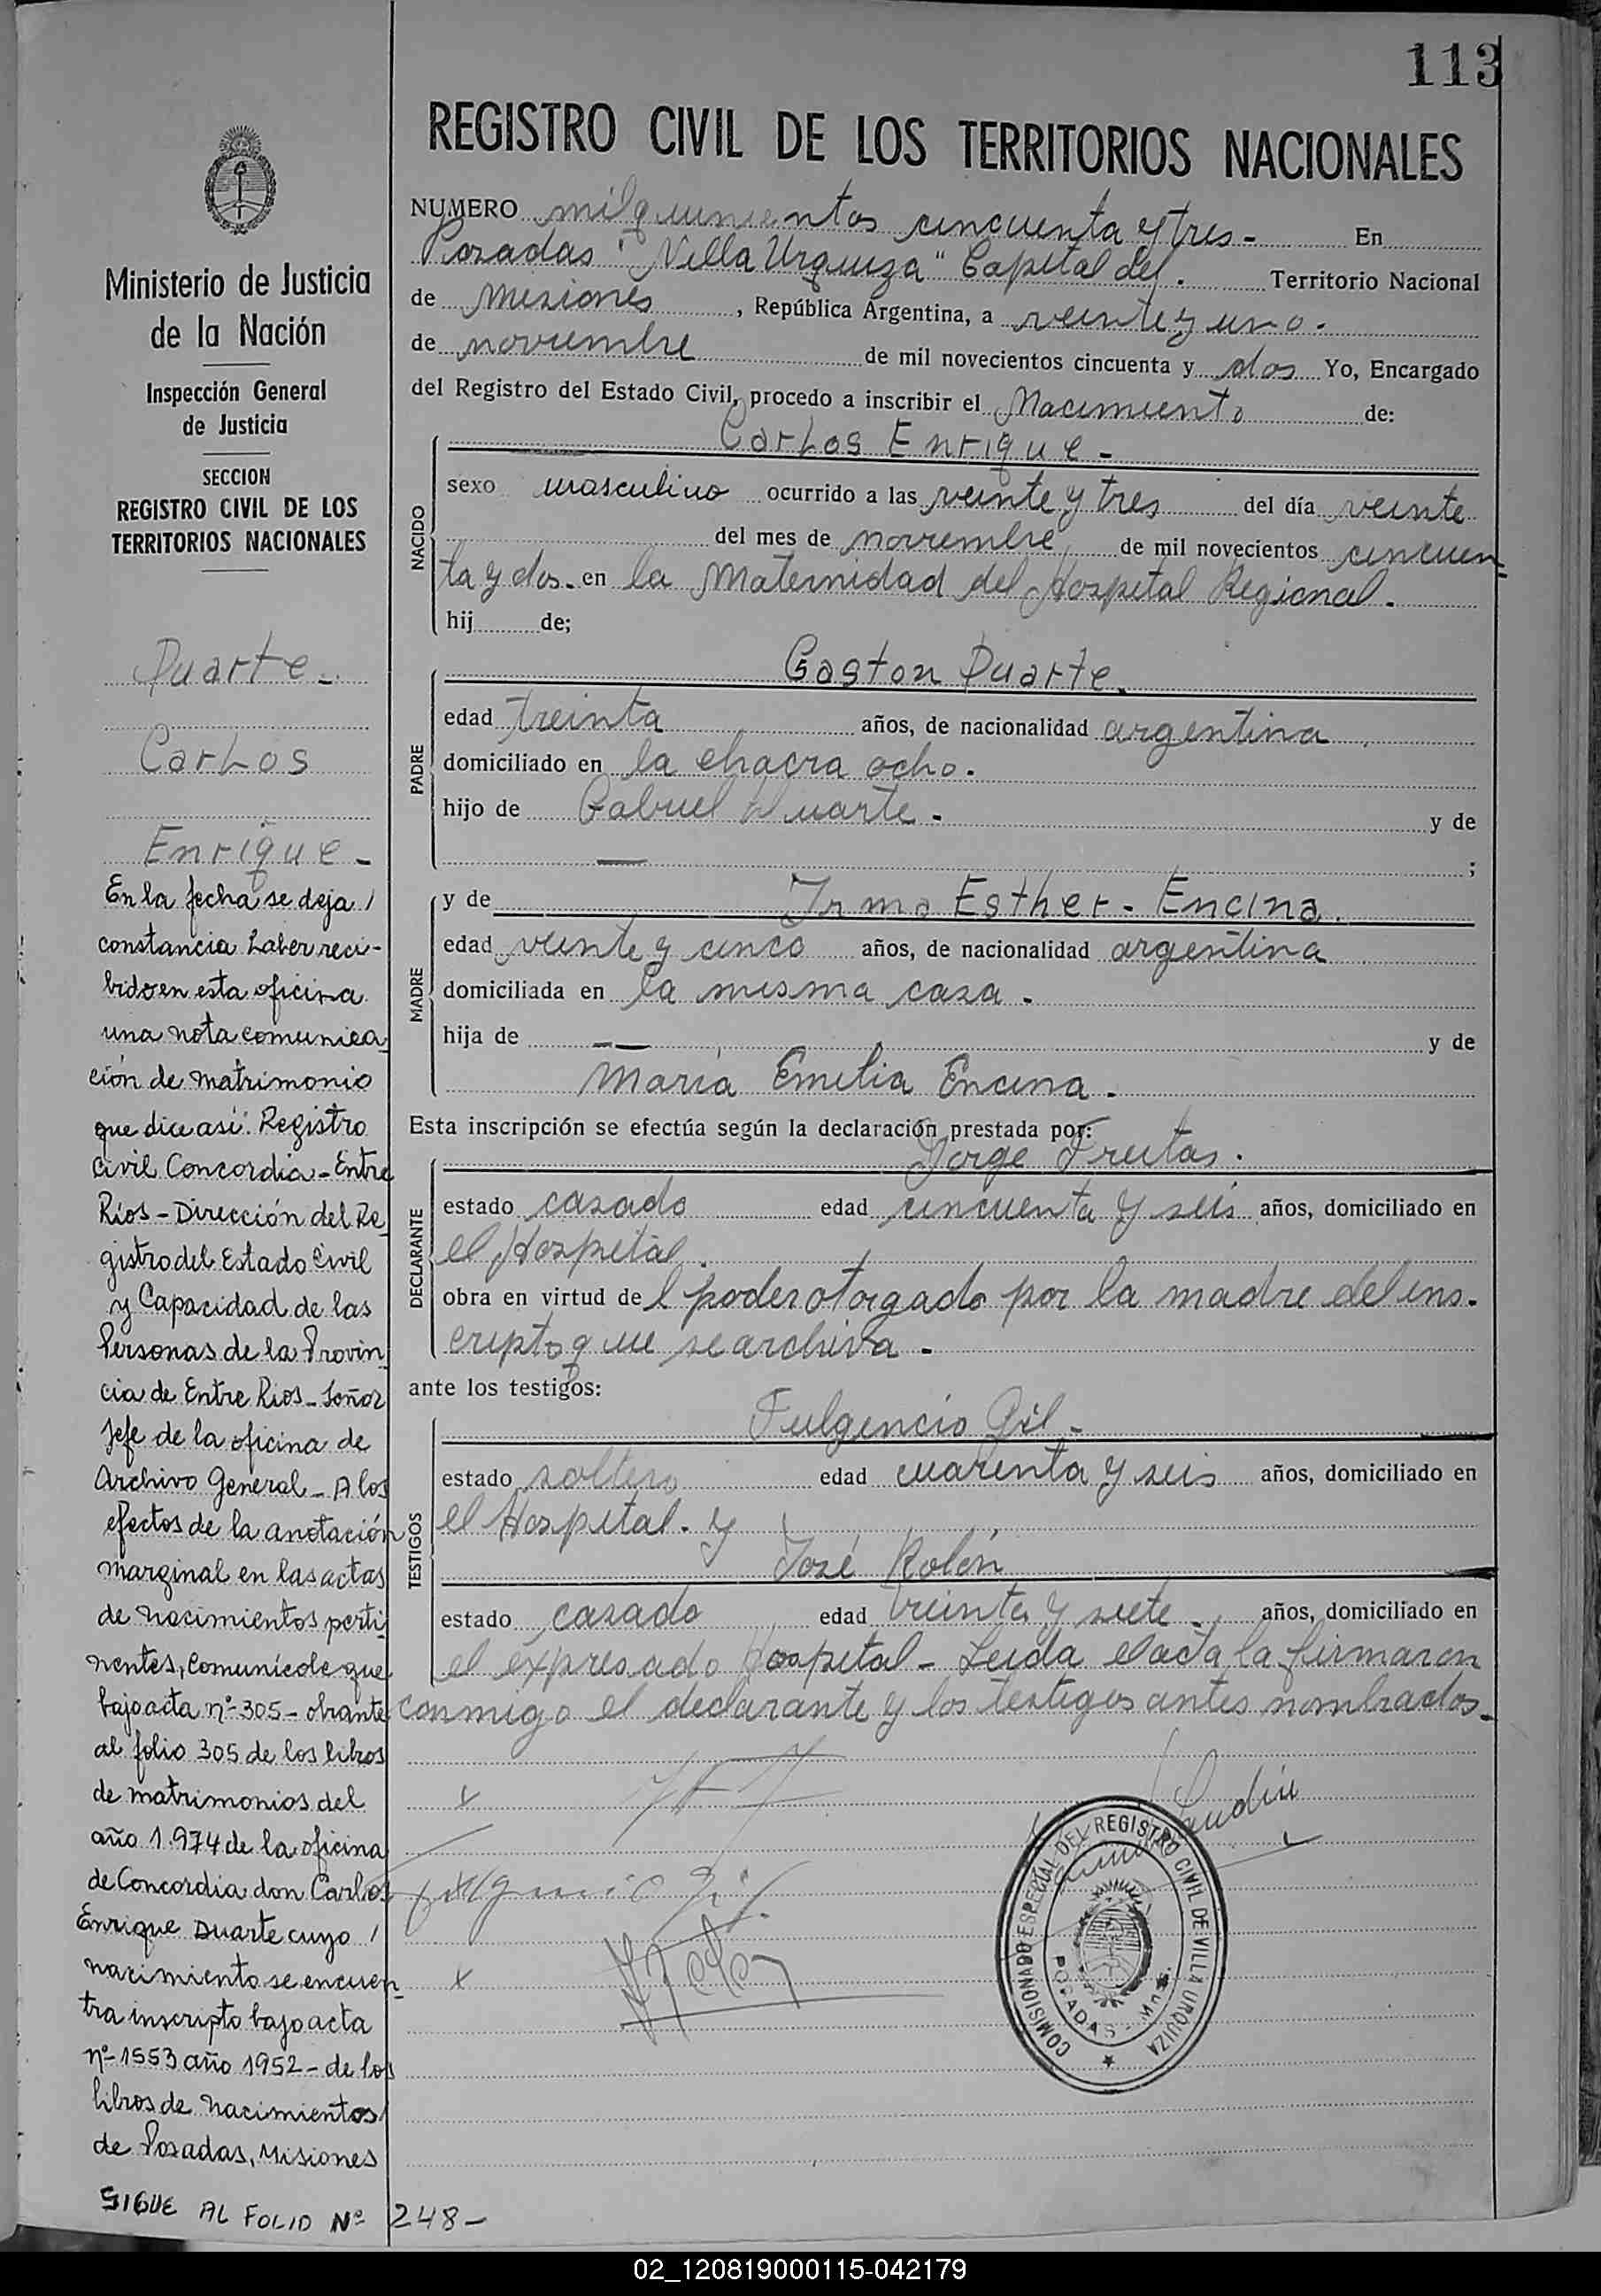 113
REGISTRO CIVIL DE LOS TERRITORIOS NACIONALES
NUMERO mil quinientos cincuenta y tres - En
Posadas "Villa Urquiza" Capital del. Territorio Nacional
de Misiones, República Argentina, a veinte y uno.
de noviembre de mil novecientos cincuenta y dos Yo, Encargado
del Registro del Estado Civil, procedo a inscribir el Nacimiento de:
NACIDO
Carlos Enrique -
sexo masculino ocurrido a las veinte y tres del día veinte
del mes de noviembre de mil novecientos cincuen-
ta y dos - en la Maternidad del Hospital Regional.
hij de;
PADRE
Gaston Duarte.
edad treinta años, de nacionalidad argentina
domiciliado en la chacra ocho.
hijo de Gabriel Duarte - y de
— ;
MADRE
y de Irma Esther - Encina.
edad veinte y cinco años, de nacionalidad argentina
domiciliada en la misma casa.
hija de — y de
María Emilia Encina.
Esta inscripción se efectúa según la declaración prestada por:
DECLARANTE
Jorge Freitas.
estado casado edad cincuenta y seis años, domiciliado en
el Hospital.
obra en virtud del poder otorgado por la madre del ins-
cripto que se archiva -
ante los testigos:
TESTIGOS
Fulgencio Gil -
estado soltero edad cuarenta y seis años, domiciliado en
el Hospital. y
José Rolón
estado casado edad treinta y siete - años, domiciliado en
el expresado Hospital - Leida el acta la firmaron
conmigo el declarante y los testigos antes nombrados -
COMISIONADO ESPECIAL DEL REGISTRO CIVIL DE VILLA URQUIZA
POSADAS - Mnes.
Ministerio de Justicia
de la Nación
Inspección General
de Justicia
SECCION
REGISTRO CIVIL DE LOS
TERRITORIOS NACIONALES
Duarte -
Carlos
Enrique -
En la fecha se deja /
constancia haber reci-
bido en esta oficina
una nota comunica
ción de matrimonio
que dice así: Registro
Civil Concordia - Entre
Ríos - Dirección del Re
gistro del Estado Civil
y Capacidad de las
Personas de la Provin
cia de Entre Ríos - Señor
Jefe de la oficina de
Archivo General - A los
efectos de la anotación
marginal en las actas
de nacimientos perti
nentes, comunícole que
bajo acta nº 305 - obrante
al folio 305 de los libros
de matrimonios del
año 1.974 de la oficina
de Concordia don Carlos
Enrique Duarte cuyo /
nacimiento se encuen-
tra inscripto bajo acta
nº 1553 año 1952 - de los
libros de nacimientos
de Posadas, Misiones
SIGUE AL FOLIO Nº 248 -
02_120819000115-042179